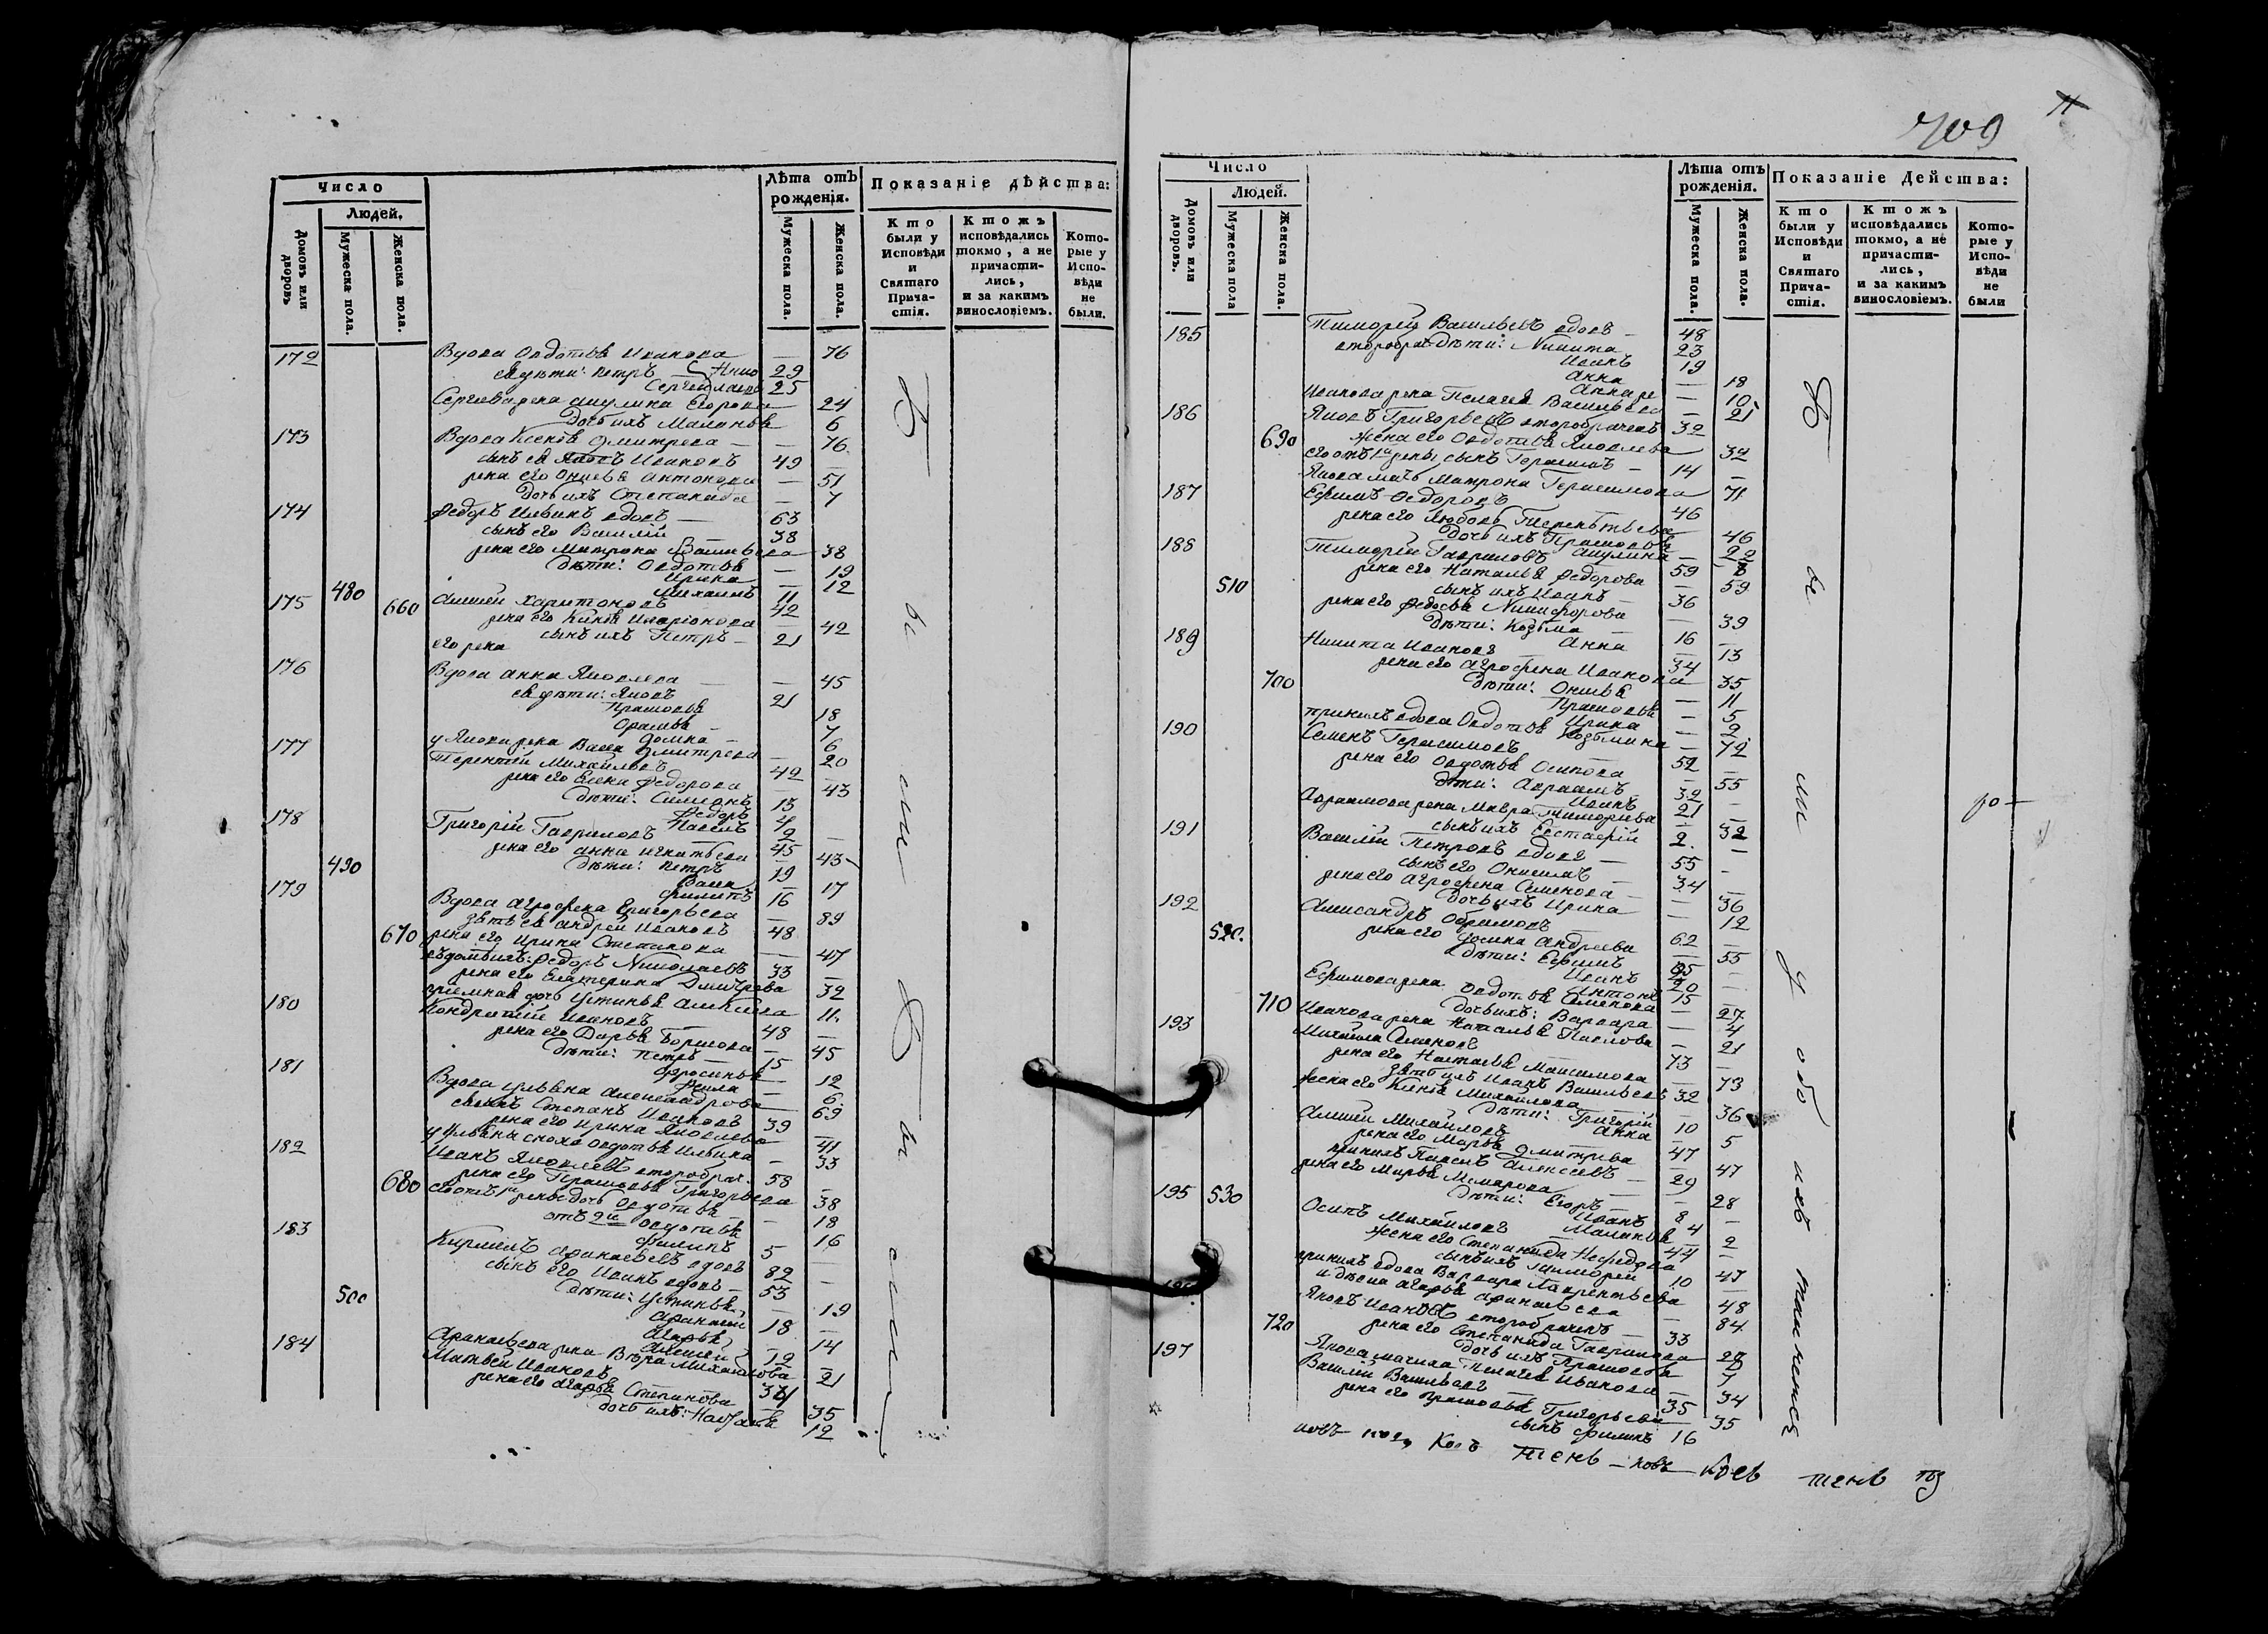 709
Число
Людей.
Домовъ или дворовъ
Мужеска пола.
Женска пола.
Лѣта отъ рожденія.
Мужеска пола.
Женска пола.
Показаніе дѣйства:
Кто были у Исповѣди и Святаго Прича-стія.
Ктожъ исповѣдались токмо, а не причасти-лись, и за какимъ винословіемъ.
Кото-рые у Испо-вѣди не были.
172 Вдова Овдотья Иванова — 76
ея дѣти: Петръ 29
Сергей 25
Сергеева жена Акулина Егорова 24
дочь ихъ Маланья 6
173 Вдова Ксенія Дмитрева — 76
сынъ ея Яковъ Ивановъ 49
жена его Онисья Антонова — 51
дочь ихъ Степанида — 7
174 Федоръ Ильинъ вдовъ — 63
сынъ его Василій 38
жена его Матрона Васильева 38
дѣти: Овдотья — 19
Ирина — 12
480 Михаилъ 11
175 660 Алексей Харитоновъ 42
жена его Ксенія Иларіонова 42
сынъ ихъ Петръ — 21
его жена
176 Вдова Анна Яковлева — 45
ея дѣти: Яковъ 21
Прасковья 18
Орина — 7
Домна — 6
у Якова жена Васса Дмитрева 20
177 Терентій Михайловъ 42
жена его Елена Федорова — 43
дѣти: Симионъ 13
Федоръ 4
Павелъ 2
178 Григорій Гавриловъ 45
жена его Анна Игнатьева 43
490 дѣти: Петръ 19
Васса — 17
Филипъ 16
179 Вдова Агрофена Григорьева — 89
зять ея Андрей Ивановъ 48
670 жена его Ирина Степанова — 47
Федоръ Николаевъ 33
жена его Екатерина Дмитрева 32
приемная дочь Устинья Алексеева 11
180 Кондратій Ивановъ 48
жена его Дарья Борисова — 45
дѣти: Петръ — 15
Офросинья — 12
Фекла — 6
181 Вдова Ульяна Александрова 69
сынъ Степанъ Ивановъ 39
жена его Ирина Яковлева 41
у Ульяны сноха Овдотья Ильина — 33
182 Иванъ Яковлевъ второбрач. 58
680 жена его Прасковья Григорьева 38
дочь Овдотья — 18
отъ 2й Овдотья 16
Филипъ 5
183 Кирилъ Афанасьевъ вдовъ 82
сынъ его Иванъ вдовъ — 53
500 дѣти: Устинья — 19
Афанасій 18
Агафья — 14
Алексей 12
Афанасьева жена Вера Михайлова 21
184 Матвей Ивановъ 34
жена его Агафья Степанова 35
дочь ихъ: Наталья 12
Всѣ сіи были
Число
Людей.
Домовъ или дворовъ.
Мужеска пола
Женска пола.
Лѣта отъ рожденія.
Мужеска пола.
Женска пола.
Показаніе Действа:
Кто были у Исповѣди и Святаго Прича-стія.
Ктожъ исповѣдались токмо, а не причасти-лись, и за какимъ винословіемъ.
Кото-рые у Испо-вѣди не были
185 Тимофей Васильевъ вдовъ — 48
дѣти: Никита 23
Иванъ 19
Анна — 18
Анна — 10
Иванова жена Пелагея Васильева — 21
186 Яковъ Григорьевъ второбрачен 32
690 жена его Овдотья Яковлева 32
его отъ 1й жены сынъ Герасимъ — 14
Якова мать Матрона Герасимова 71
187 Ефимъ Федоровъ 46
жена его Любовь Терентьева 46
дочь ихъ Прасковья 22
Акулина
188 Тимофей Гавриловъ 59
510 жена его Наталья Федорова 59
сынъ ихъ Иванъ — 36
жена его Федосья Никифорова 39
дѣти: Козьма 16
Анна — 13
189 Никита Ивановъ 34
жена его Агрофена Иванова 35
700 дѣти: Онисья — 11
Прасковья — 5
Ирина — 2
при нихъ вдова Овдотья Козьмина — 72
190 Семенъ Герасимовъ 52
жена его Овдотья Осипова 55
дѣти: Авраамъ 32
Иванъ 21
Авраамова жена Мавра Тимофеева 32
сынъ ихъ Евстафій 2
191 Василій Петровъ вдовъ — 55
сынъ его Онисимъ 34
жена его Агрофена Семенова — 36
дочь ихъ Ирина — 12
192 Александръ Ефимовъ 62
520 жена его Домна Андреева 55
дѣти: Ефимъ 25
Иванъ 20
Антонъ 15
Ефимова жена Овдотья Семенова — 27
710 дочь ихъ: Варвара — 4
Иванова жена Наталья Павлова — 21
193 Михайла Семеновъ 73
жена его Наталья Максимова — 73
зять ихъ Иванъ Васильевъ 32
жена его Ксенія Михайлова — 36
дѣти: Григорій 10
Анна 5
Алексей Михайловъ 47
жена его Марья Дмитрева 47
при нихъ Павелъ Алексеевъ — 29
жена его Марья Макарова — 28
530 дѣти: Егоръ — 8
Иванъ 4
Маланья 2
195 Осипъ Михайловъ 44
жена его Степанида Нефедова 47
сынъ ихъ Тимофей 10
при нихъ вдова Варвара Лаврентьева 48
и девка Агафья Афанасьева 84
Яковъ Ивановъ второбраченъ 33
720 жена его Степанида Гаврилова 27
дочь ихъ Прасковья 7
Якова мачиха Пелагея Иванова — 34
197 Василій Васильевъ 35
жена его Прасковья Григорьева 35
сынъ Филипъ 16
Всѣ сіи у обоихъ таинствъ